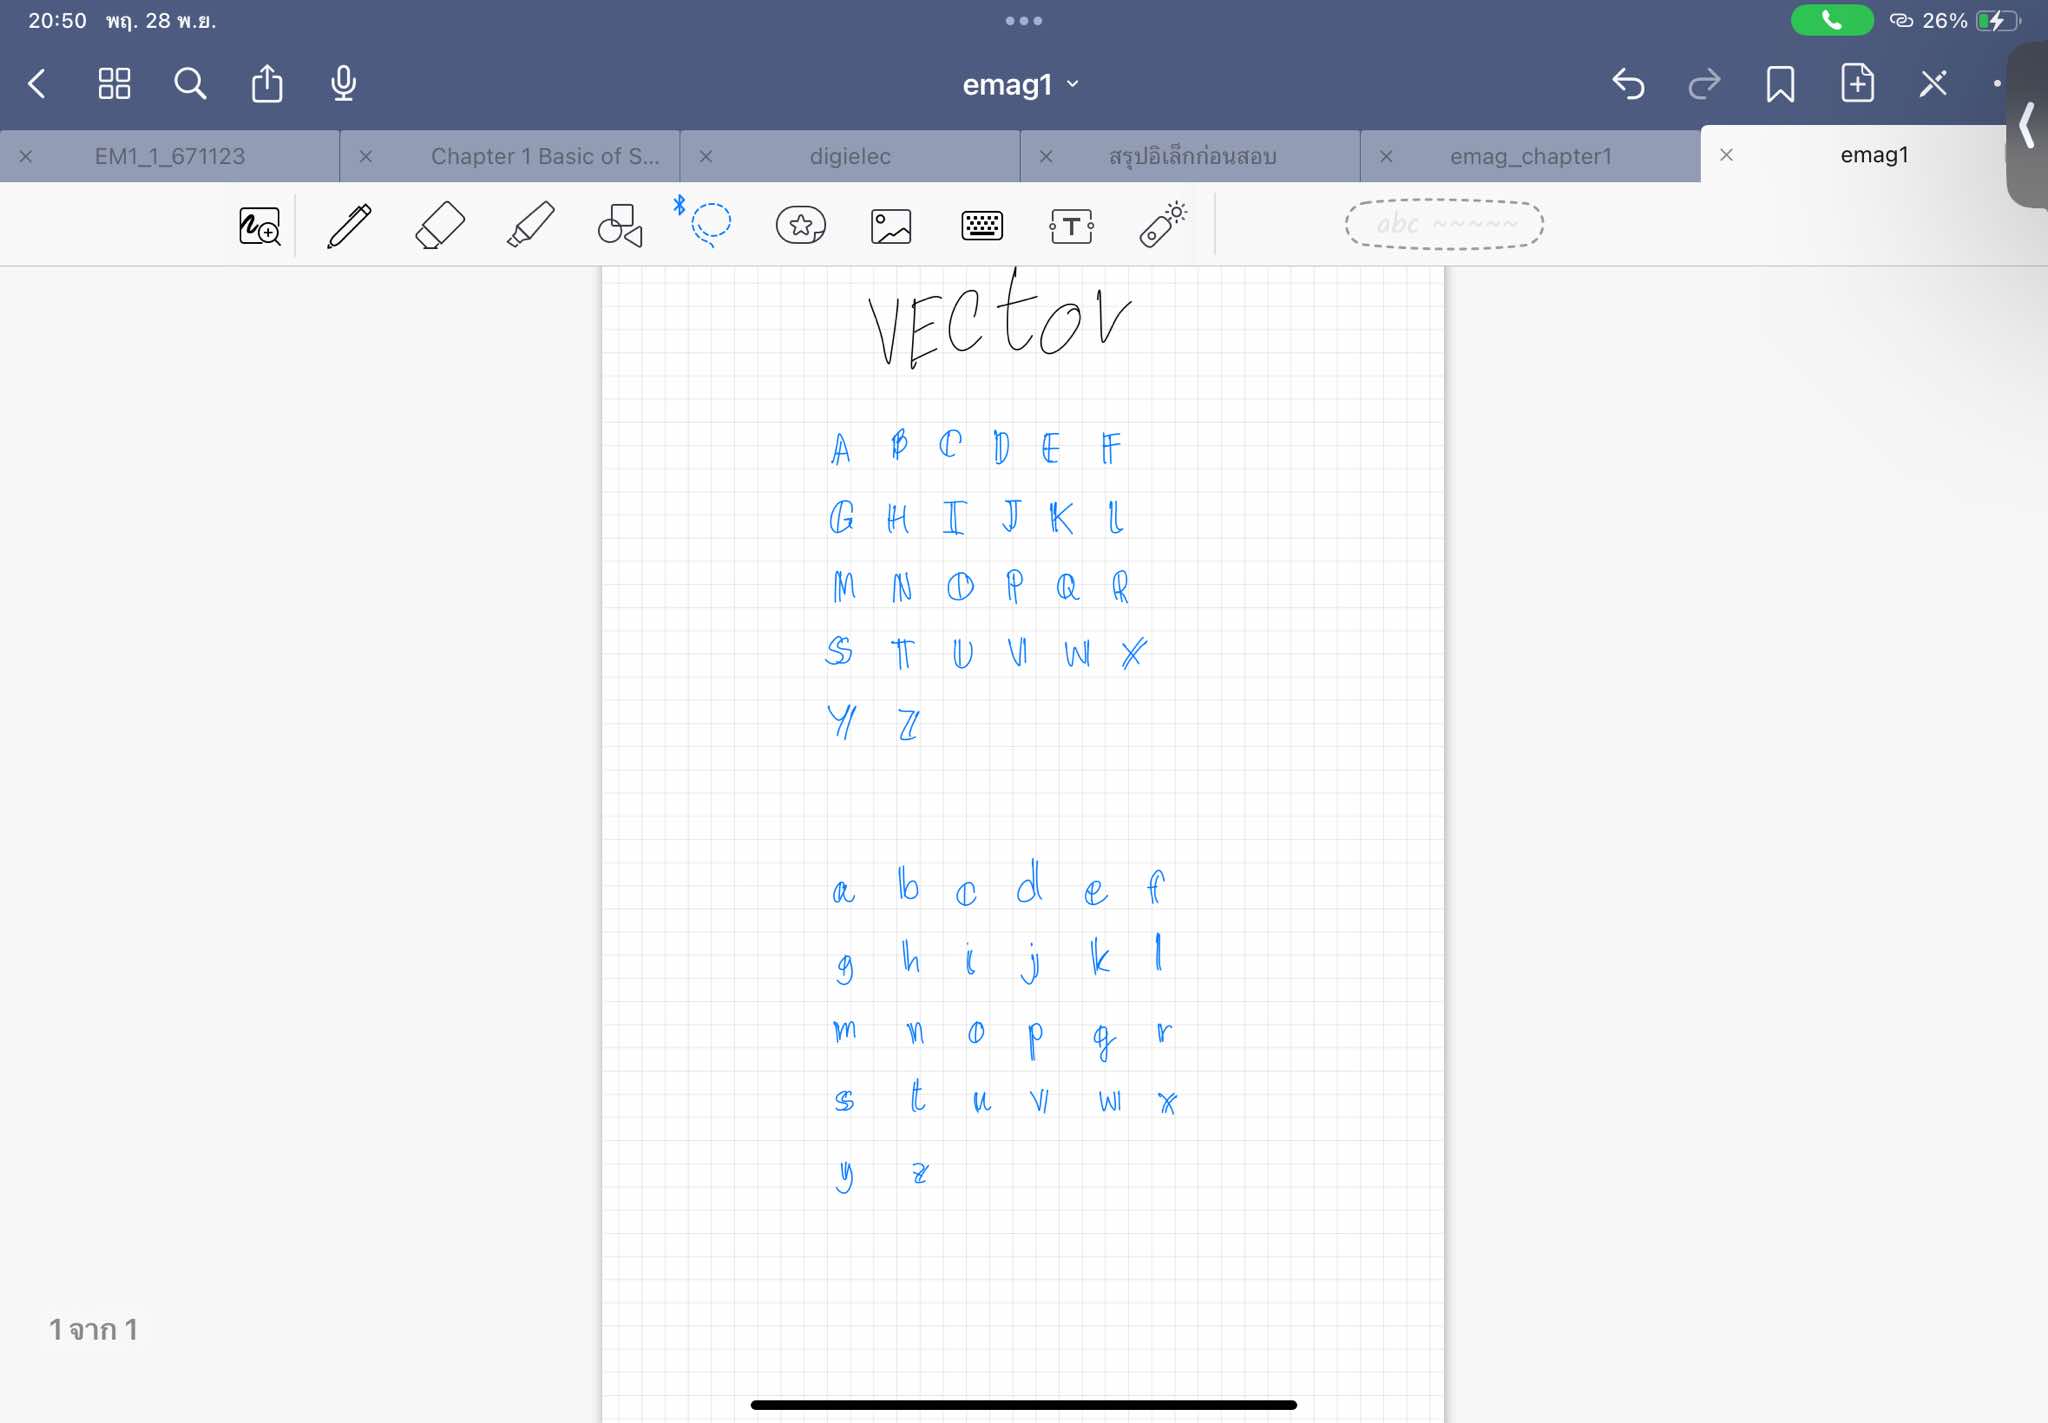 20:50 พฤ. 28 พ.ย. 26%
emag1
EM1_1_671123 Chapter 1 Basic of S... digielec สรุปอิเล็กก่อนสอบ emag_chapter1 emag1
T abc
VECtor
A B C D E F
G H I J K L
M N O P Q R
S T U V W X
Y Z
a b c d e f
g h i j k l
m n o p q r
s t u v w x
y z
1 จาก 1